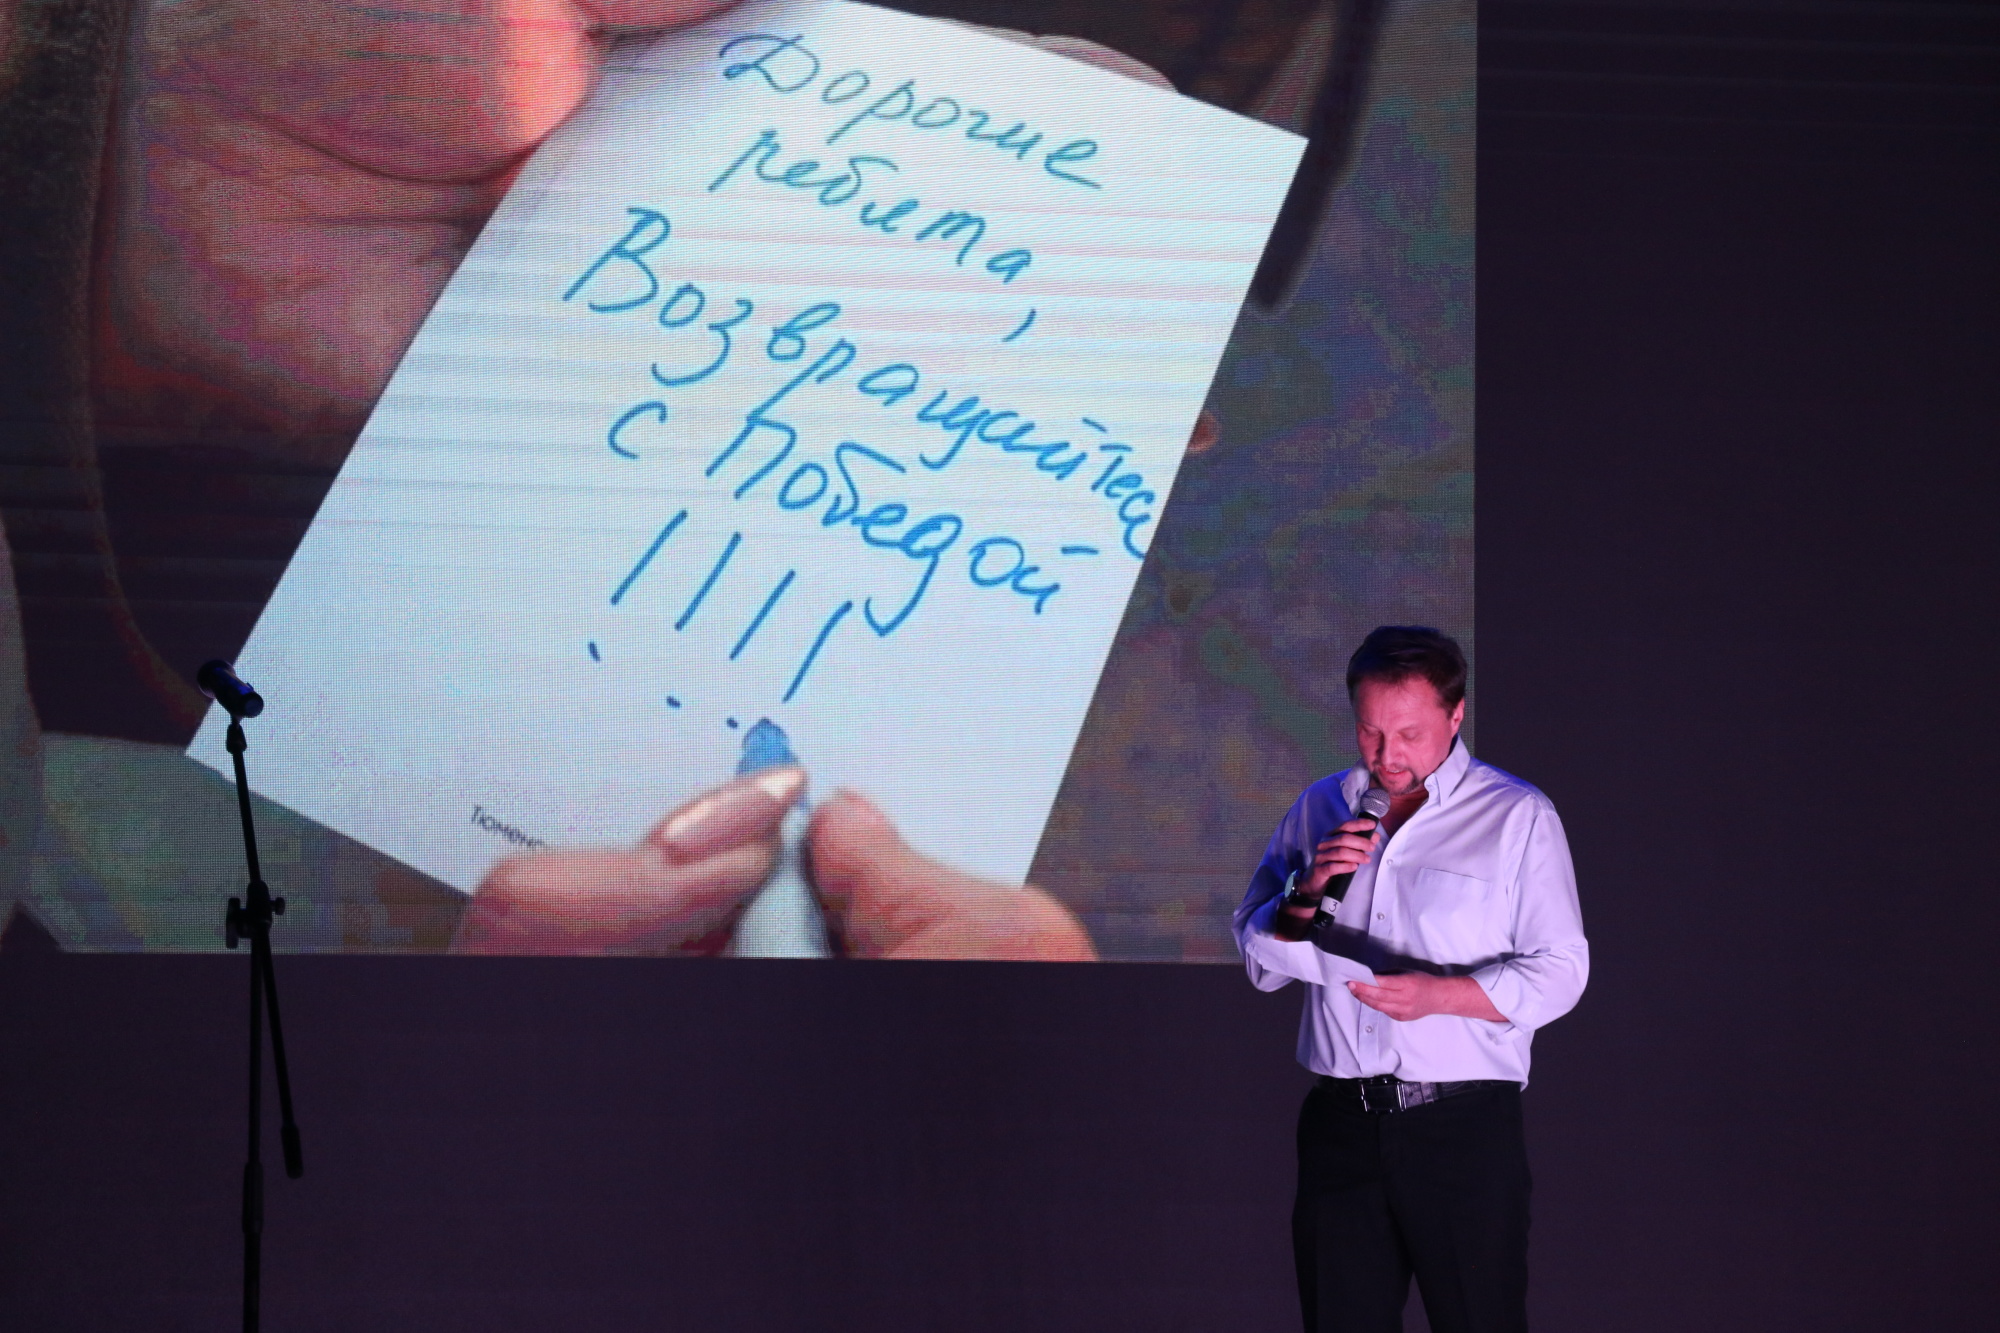 Дорогие
ребята,
Возвращайтесь
с Победой
!!!!
Тюменс
3